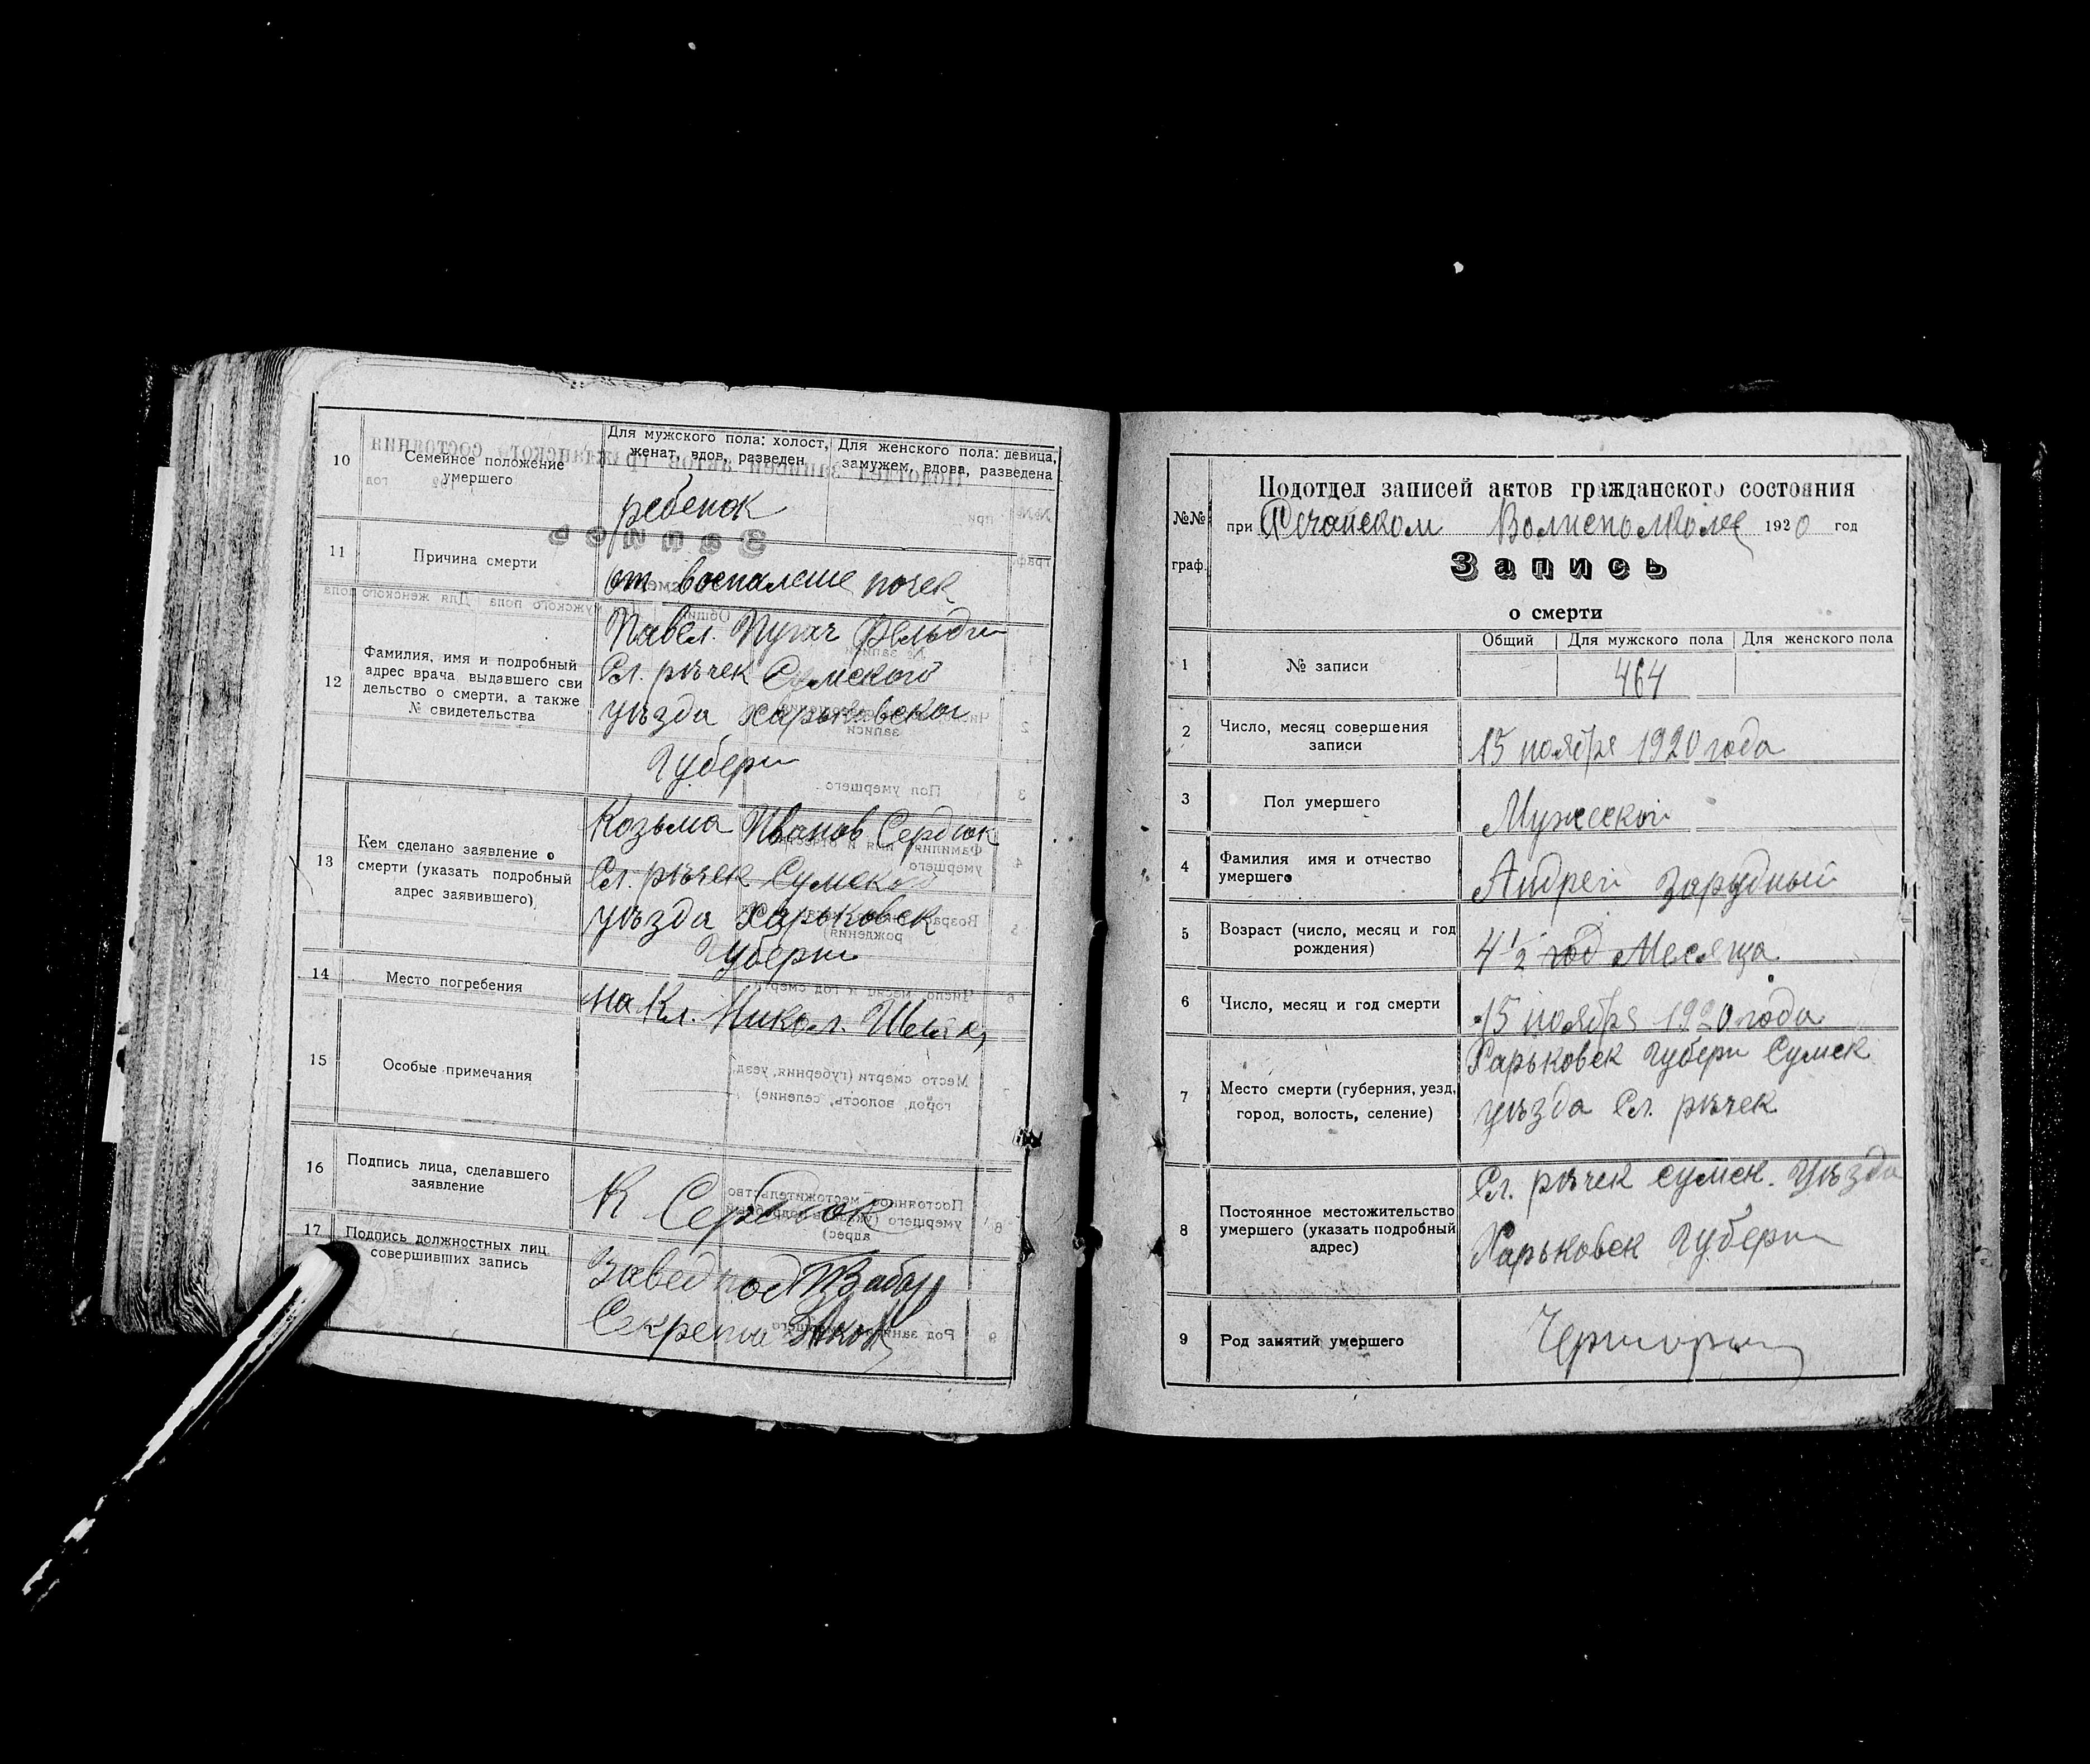 10
Семейное положение
умершего
Для мужского пола: холост,
женат, вдов, разведен
Для женского пола: девица,
замужем, вдова, разведена
ребенок
11
Причина смерти
от воспаление почек
12
Фамилия, имя и подробный
адрес врача, выдавшего сви
дельство о смерти, а также
№ свидетельства
Павел Пугач
Сл. рѣчек Сумского
уѣзда Харьковской
Губерн
13
Кем сделано заявление о
смерти (указать подробный
адрес заявившего)
Козьма Иванов Сердюк
Сл. рѣчек Сумског
уѣзда Харьковск
Губерн
14
Место погребения
на Кл. Никол.
15
Особые примечания
16
Подпись лица, сделавшего
заявление
К Сердюк
17
Подпись должностных лиц,
совершивших запись
Завед под
Секрета
№№
граф.
Подотдел записей актов гражданского состояния
при Речанском Волисполкоме 1920 год
Запись
о смерти
Общий Для мужского пола Для женского пола
1
№ записи
464
2
Число, месяц совершения
записи
15 ноября 1920 года
3
Пол умершего
Мужеской
4
Фамилия имя и отчество
умершего
Андрей Зарудный
5
Возраст (число, месяц и год
рождения)
4 1/2 год Месяца
6
Число, месяц и год смерти
15 ноября 1920 года
7
Место смерти (губерния, уезд,
город, волость, селение)
Харьковск Губерн Сумск
уѣзда Сл. рѣчек
8
Постоянное местожительство
умершего (указать подробный
адрес)
Сл. рѣчек Сумск. Уѣзда
Харьковск Губерн
9
Род занятий умершего